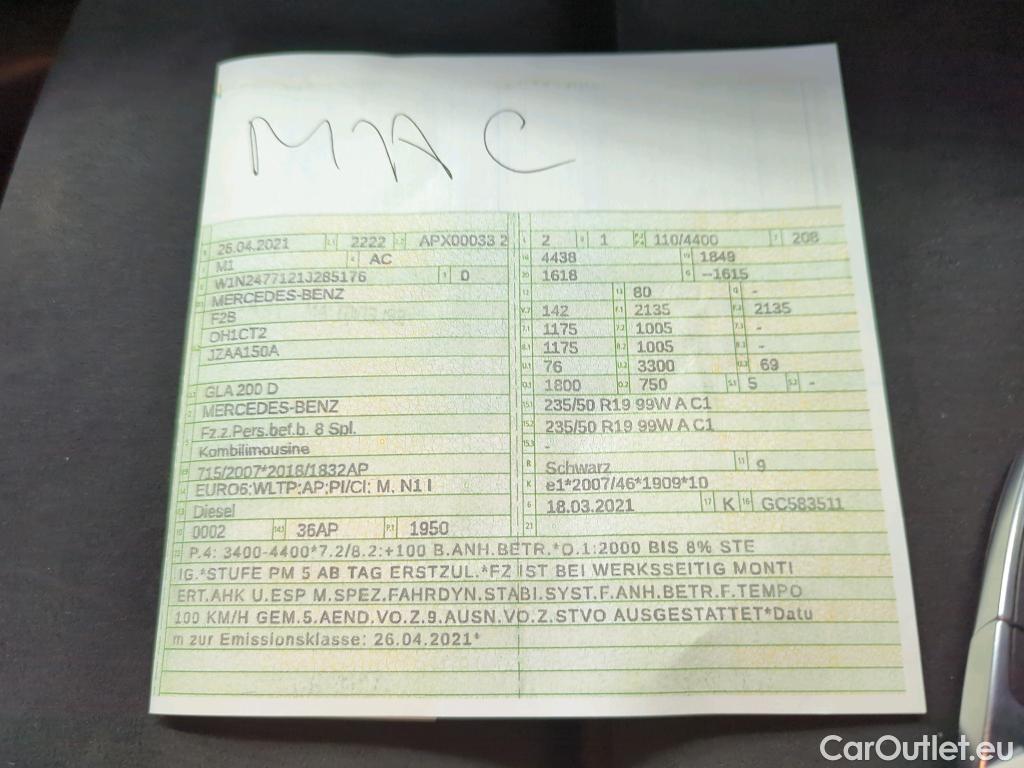 MAC
26.04.2021 2222 APX00033 2
M1 AC
W1N2477121J285176 D
MERCEDES-BENZ
F2B
OH1CT2
JZAA150A
GLA 200 D
MERCEDES-BENZ
Fz.z.Pers.bef.b. 8 Spl.
Kombilimousine
715/2007*2018/1832AP
EURO6;WLTP;AP;PI/CI; M, N1 I
Diesel
0002 36AP 1950
2 1 110/4400 208
4438 1849
1618 --1615
80 -
142 2135 2135
1175 1005 -
1175 1005 -
76 3300 69
1800 750 5 -
235/50 R19 99W A C1
235/50 R19 99W A C1
-
Schwarz 9
e1*2007/46*1909*10
18.03.2021 17 K 16 GC583511
21
P.4: 3400-4400*7.2/8.2:+100 B.ANH.BETR.*O.1:2000 BIS 8% STE
IG.*STUFE PM 5 AB TAG ERSTZUL.*FZ IST BEI WERKSSEITIG MONTI
ERT.AHK U.ESP M.SPEZ.FAHRDYN.STABI.SYST.F.ANH.BETR.F.TEMPO
100 KM/H GEM.5.AEND.VO.Z.9.AUSN.VO.Z.STVO AUSGESTATTET*Datu
m zur Emissionsklasse: 26.04.2021*
CarOutlet.eu